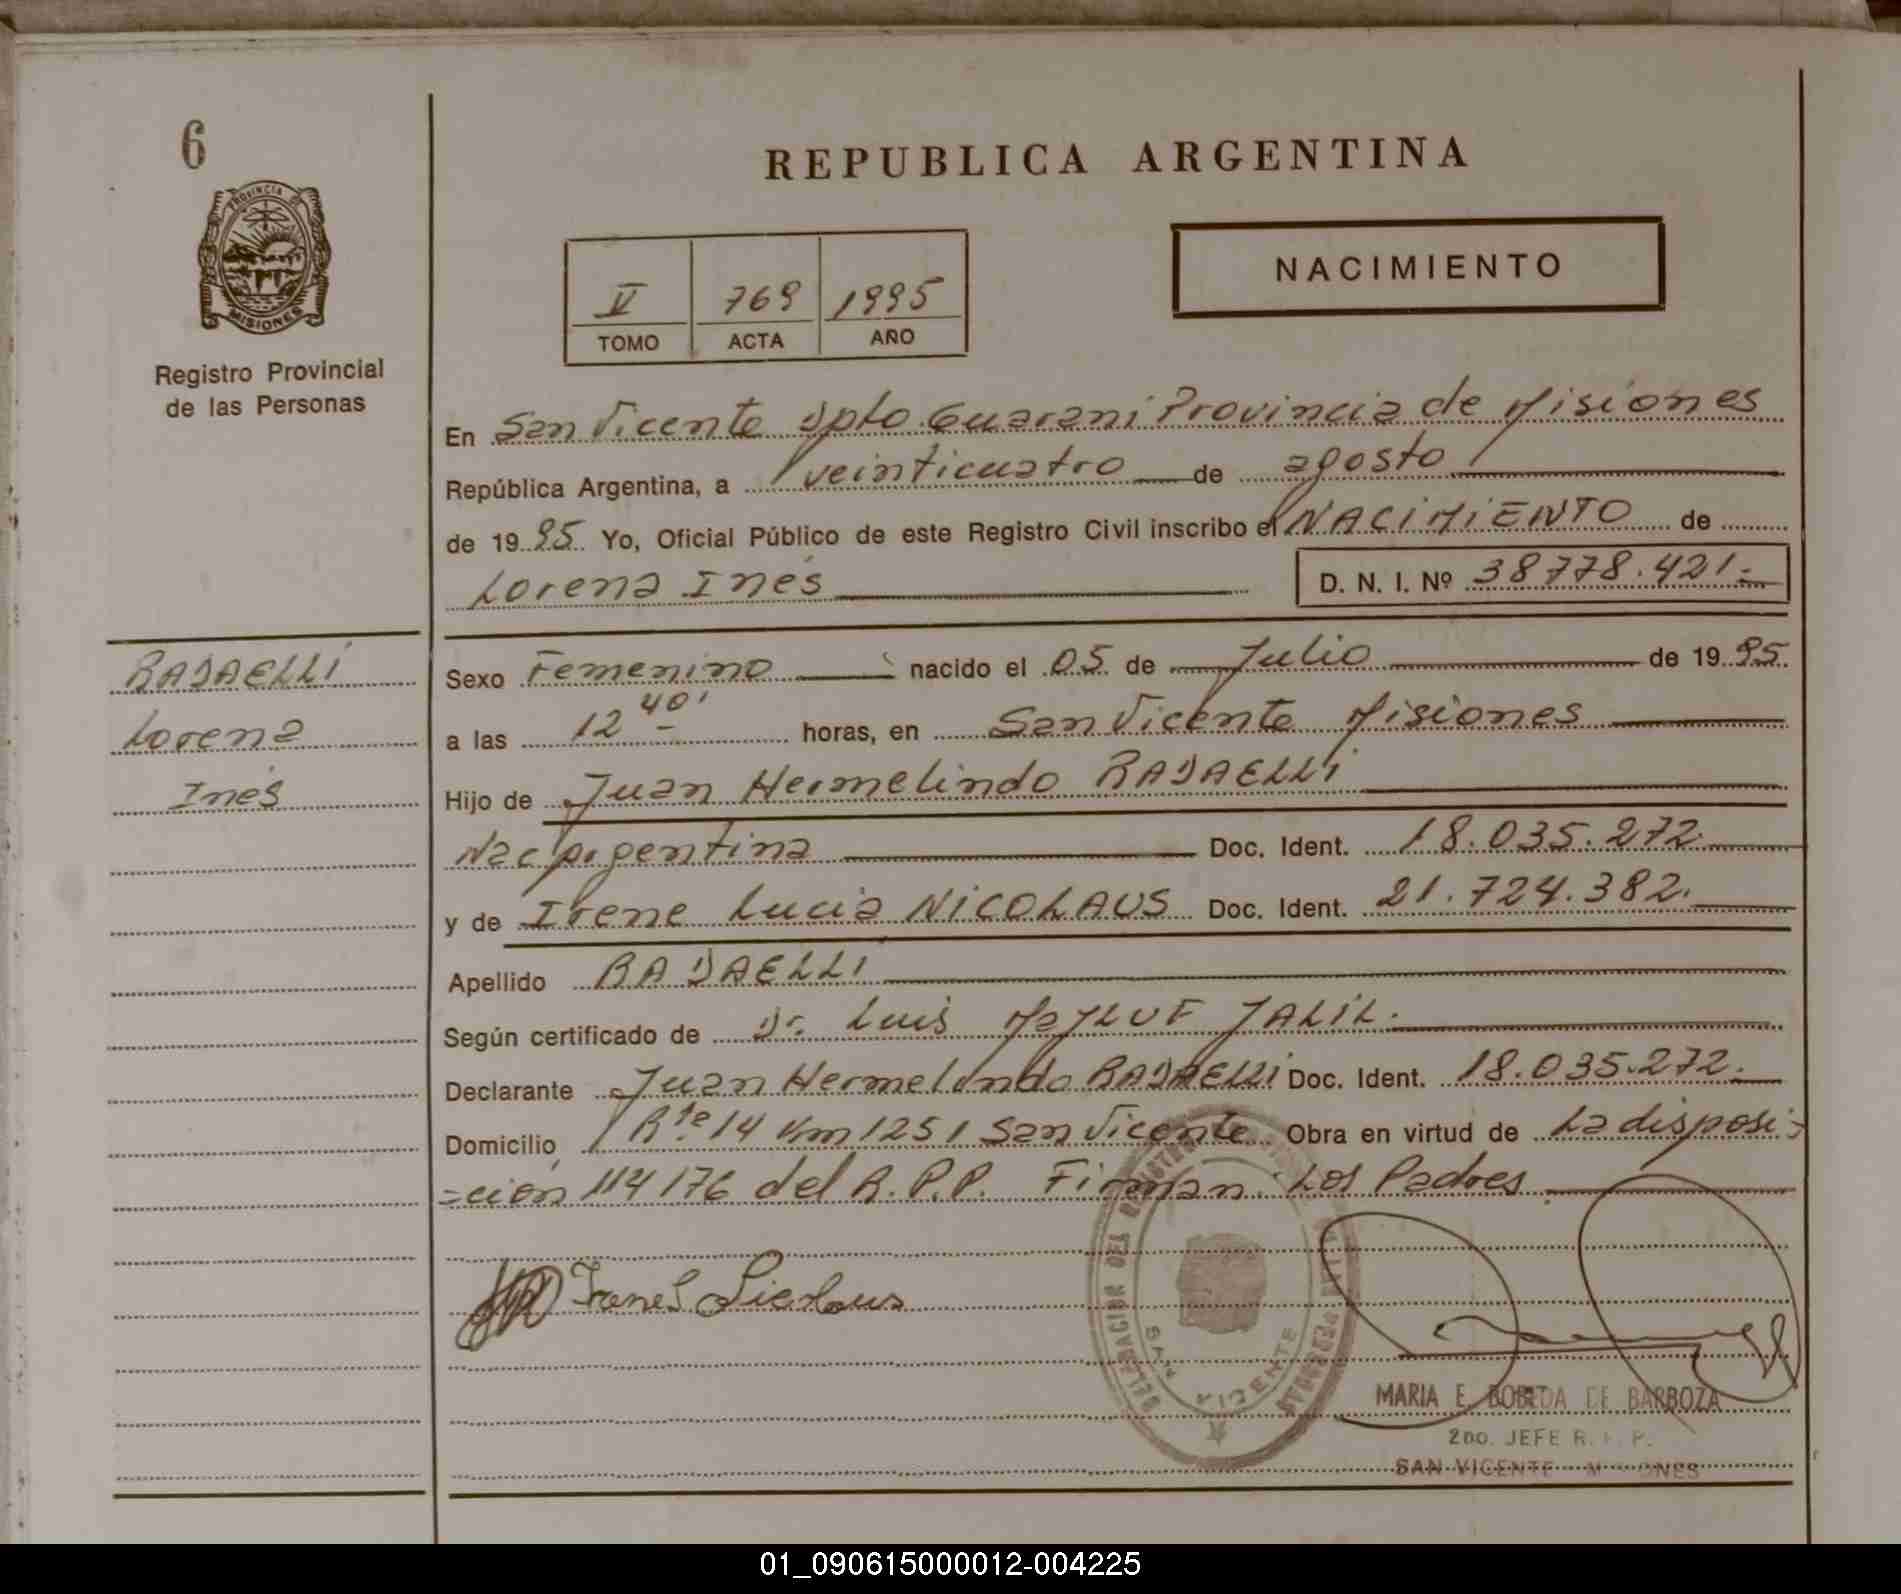 6
PROVINCIA
MISIONES
Registro Provincial
de las Personas
REPUBLICA ARGENTINA
NACIMIENTO
V 769 1995
TOMO ACTA AÑO
En San Vicente Dpto. Guaraní Provincia de Misiones
República Argentina, a veinticuatro de agosto
de 1995 Yo, Oficial Público de este Registro Civil inscribo el NACIMIENTO de
Lorena Inés D. N. I. Nº 38778.421.-
RADAELLI
Lorena
Inés
Sexo Femenino nacido el 05 de Julio de 1995
a las 12 40' horas, en San Vicente Misiones
Hijo de Juan Hermelindo RADAELLI
Nac Argentina Doc. Ident. 18.035.272
y de Irene Lucia NICOLAUS Doc. Ident. 21.724.382.
Apellido RADAELLI
Según certificado de Dr. Luis JALIL.
Declarante Juan Hermelindo RADAELLI Doc. Ident. 18.035.272.
Domicilio Rta. 14 Km 1251 San Vicente Obra en virtud de La disposi-
=ción 114/76 del R.P.P. Firman: Los Padres
Irene L Nicolaus
DELEGACION DEL
SAN VICENTE
MARIA E. BOBEDA DE BARBOZA
2do. JEFE R. P. P.
SAN VICENTE - MISIONES
01_090615000012-004225